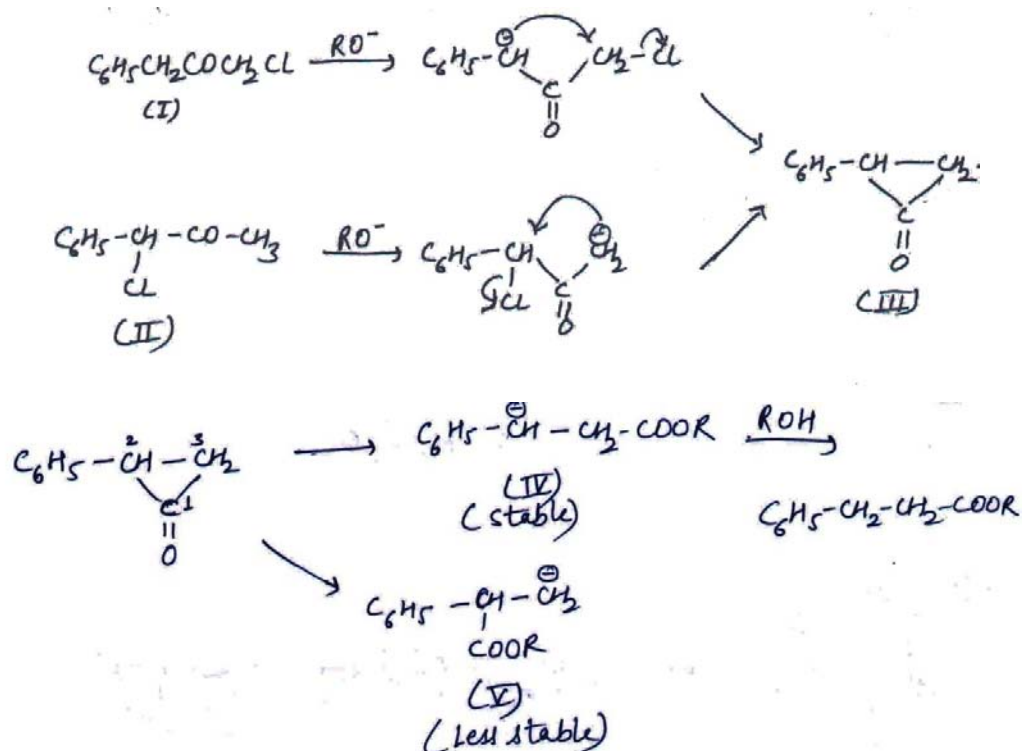 C₆H₅CH₂COCH₂Cl RO⁻ C₆H₅-CH⊖ CH₂-Cl
(I) C
O
C₆H₅-CH-CH₂
C
O
(III)
C₆H₅-CH-CO-CH₃ RO⁻ C₆H₅-CH ⊖CH₂
Cl Cl C
(II) O
C₆H₅-²CH-³CH₂ C₆H₅-CH⊖-CH₂-COOR ROH
C¹ (IV)
O (stable) C₆H₅-CH₂-CH₂-COOR
C₆H₅-CH-CH₂⊖
COOR
(V)
(Less stable)